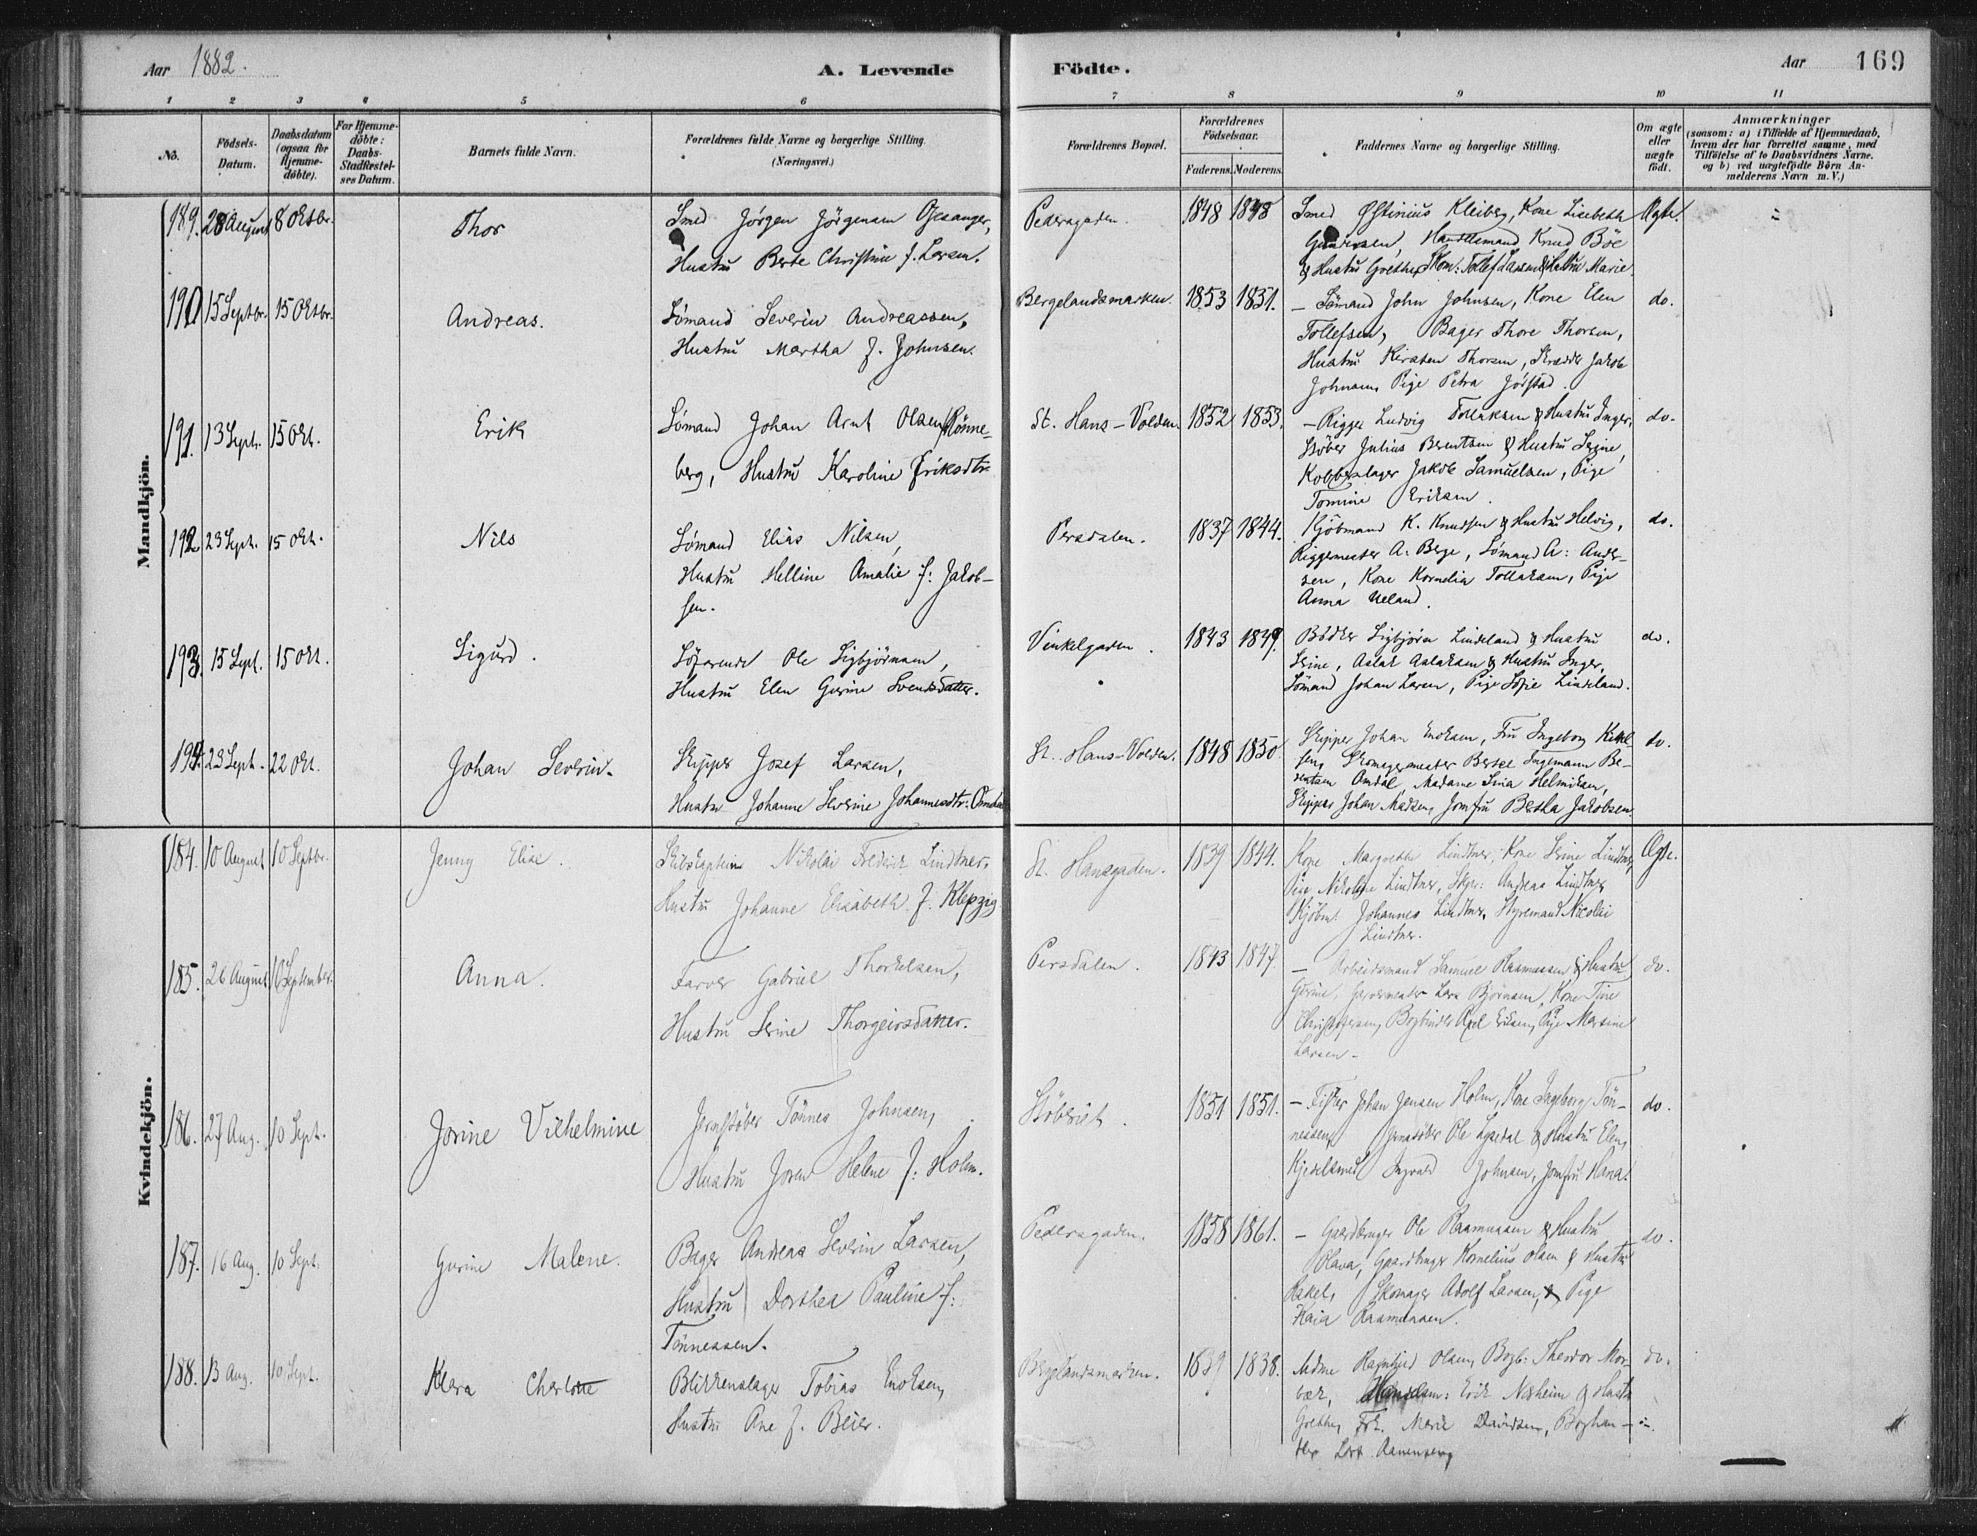 Aar 1882.
A. Levende
Födte.
Aar
169
1 2 3 4 5 6 7 8 9 10 11
No.
Födsels-Datum.
Daabsdatum (ogsaa for Hjemme-döbte).
For Hjemme-döbte: Daabs-Stadfæstel-ses Datum.
Barnets fulde Navn.
Forældrenes fulde Navne og borgerlige Stilling.
(Næringsvei.)
Forældrenes Bopæl.
Forældrenes Födselsaar.
Faderens. Moderens.
Faddernes Navne og borgerlige Stilling.
Om ægte eller uægte födt.
Anmærkninger
(saasom: a) i Tilfælde af Hjemmedaab, hvem der har forrettet samme, med Tilföielse af to Daabsvidners Navne, og b) ved uægtefödte Börn An-melderens Navn m. V.)
Mandkjön.
189. 28 August 8 Oktbr. Thor
Smed Jörgen Jörgensen Ogsanger,
Hustru Berte Christine f. Larsen.
Pedersgaden. 1848 1848
Smed Østinius Kleiberg, Kone Lisebeth
Gundersen, Handelsmand Knud Böe
& Hustru Grethe,
Ægte.
190 15 Septbr. 15 Oktbr. Andreas.
Sömand Severin Andreassen,
Hustru Martha f. Johnsen.
Bergelandsmarken. 1853 1851.
– Sömand John Johnsen, Kone Elen
Tollefsen, Bager Thore Thorsen,
Hustru Kirsten Thorsen, Skrædder Jakob
Johnsen, Pige Petra Jörstad.
do.
191. 13 Sept. 15 Okt. Erik
Sömand Johan Arnt Olsen Rönne-
berg, Hustru Karoline Eriksdtr.
St. Hans-Volden. 1852 1853.
– Rigger Ludvig Tollaksen & Hustru Inger,
Stöber Julius Berntsen & Hustru Serine,
Kobberslager Jakob Samuelsen, Pige
Tomine Eriksen.
do.
192 23 Sept. 15 Okt. Nils
Sömand Elias Nilsen,
Hustru Helline Amalie f: Jakob-
sen.
Persdalen. 1837 1844.
Kjöbmand K. Knudsen & Hustru Helvig,
Riggemester A. Berge, Sömand A: Ander-
sen, Kone Kornelia Tollaksen, Pige
Anna Ueland.
do.
193. 15 Sept. 15 Okt. Sigurd.
Söfarende Ole Sigbjörnsen,
Hustru Elen Gurine Svendsdatter.
Vinkelgaden. 1843 1849.
Bödker Sigbjörn Lindeland & Hustru
Serine, Aslak Aslaksen & Hustru Inger,
Sömand Johan Larsen, Pige Sofie Lindeland.
do.
194. 23 Sept. 22 Okt. Johan Severin.
Skipper Josef Larsen,
Hustru Johanne Severine Johannesdtr. Omdal
St. Hans-Volden. 1848 1850
Skipper Johan Enoksen, Fru Ingeborg
Skomagermester Bertel Ingemann Be-
Omdal, Madame Sina Helmiksen,
Skipper Johan Madsen, Jomfru Bertha Jakobsen.
do.
Kvindekjön.
184. 10 August 10 Septbr. Jenny Elise.
Skibskaptein Nikolai Fredrik Lindtner,
Hustru Johanne Elisabeth f. Klepzig
St. Hansgaden. 1839 1844.
Kone Margrethe Lindtner, Kone Serine Lindtner,
Pige Nikoline Lindtner, Skpr: Andreas Lindtner
Kjöbm. Johannes Lindtner, Styremand Nicolai
Lindtner.
Ægte.
185. 26 August 10 September. Anna.
Farver Gabriel Thorkelsen,
Hustru Serine Thorgeirsdatter.
Persdalen. 1843 1847.
– Arbeidsmand Samuel Rasmussen & Hustru
Gurine, Lars Björnsen, Kone Tine
Christofersen, Bogbinder Axel Eriksen, Pige Martine
Larsen.
do.
186. 27 Aug. 10 Sept. Jorine Vilhelmine
Jernstöber Tönnes Johnsen,
Hustru Joren Helene f. Holm.
Stöberiet. 1851 1851.
– Fisker Johan Jensen Holm, Kone Ingeborg Tön-
nessen, Jernstöber Ole Lysedal & Hustru Elen,
Kjedelsmed Ingvald Johnsen, Jomfru Hana.
do.
187. 16 Aug. 10 Sept. Gurine Malene.
Bager Andreas Severin Larsen,
Hustru Dorthea Pauline f:
Tönnessen.
Pedersgaden. 1858 1861.
– Gaardbruger Ole Rasmussen & Hustru
Olava, Gaardbruger Kornelius Olsen & Hustru
Rakel, Skomager Adolf Larsen, & Pige
Kaia Rasmussen.
do.
188. 13 Aug. 10 Sept. Klara Charlotte
Blikkenslager Tobias Enoksen,
Hustru Ane f. Beier.
Bergelandsmarken. 1839 1838.
Madme Olsen, Bogb: Theodor Mor-
bæk, Handelsm: Erik Næsheim & Hustr.
Grethe, Frk. Marie Davidsen, Boghan-
dler
do.